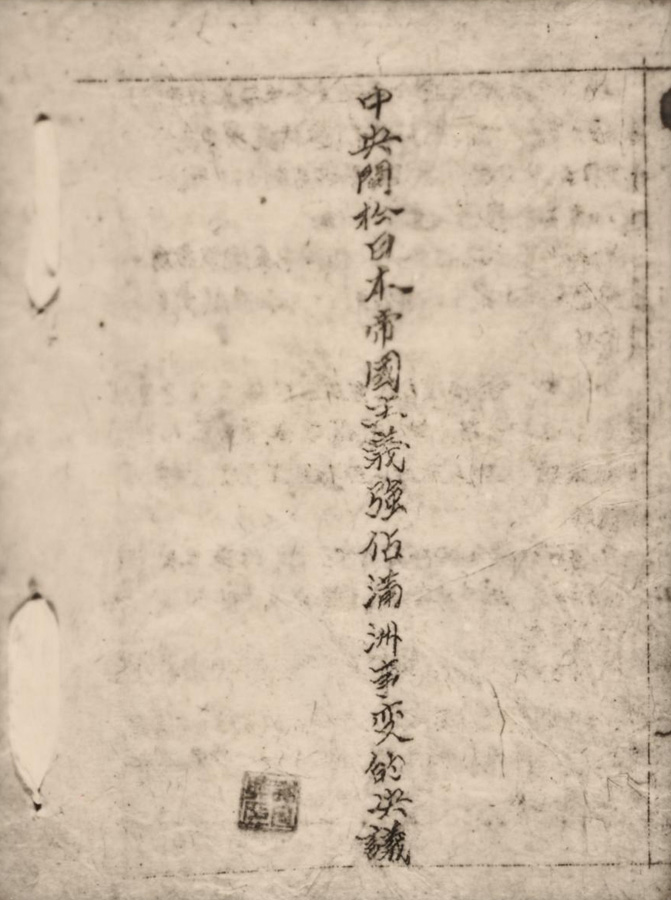 中央関於日本帝國主義強佔滿洲事变的决議